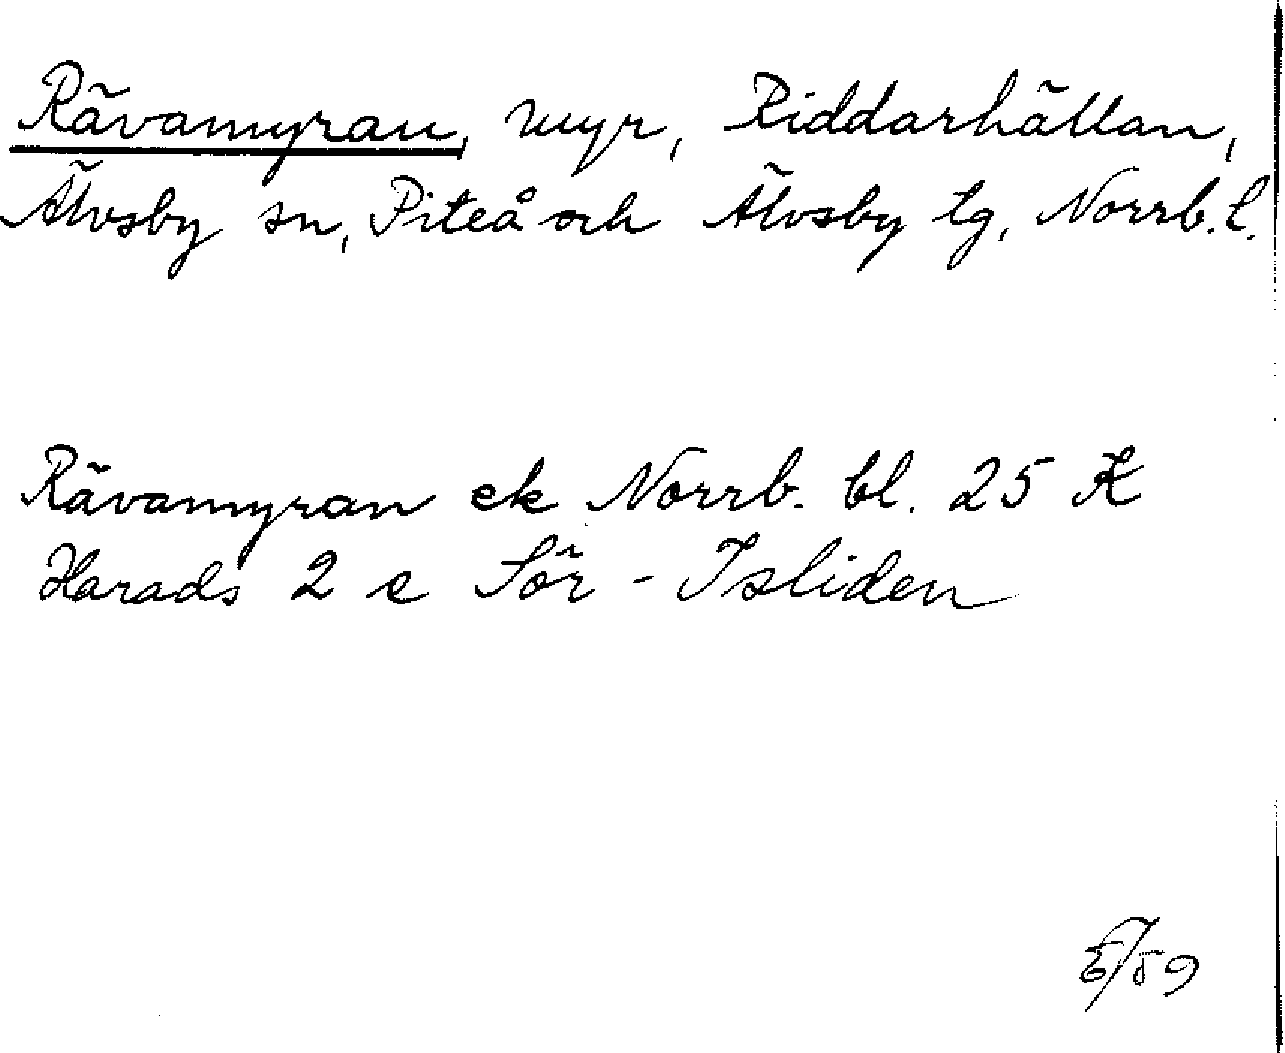 Rävamyran, myr, Riddarhällan,
Älvsby sn, Piteå och Älvsby tg, Norrb. l.
Rävamyran ek Norrb. bl. 25 K
Harads 2 e Sör-Isliden